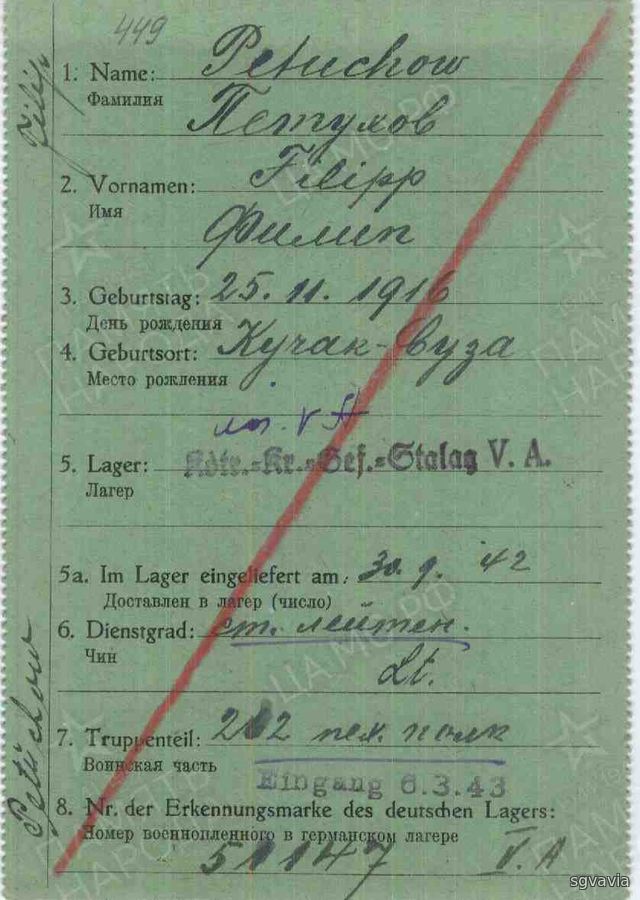 449
1. Name: Petuchow
Фамилия
Петухов
2. Vornamen: Filipp
Имя
Филип
3. Geburtstag: 25. 11. 1916
День рождения
4. Geburtsort: Кучак-Вуза
Место рождения
лаг. V A
5. Lager: Kdtr.=Kr.=Gef.=Stalag V. A.
Лагер
5a. Im Lager eingeliefert am: 30. 9. 42
Доставлен в лагер (число)
6. Dienstgrad: ст. лейтен.
Чин
Lt.
7. Truppenteil: 262 пех. полк
Воинская часть
Eingang 6.3.43
8. Nr. der Erkennungsmarke des deutschen Lagers:
Номер военнопленного в германском лагере
51147 V. A
Filip
Petuchow
ЦА МО РФ
ПАМЯТЬ
НАРОДА
sgvavia